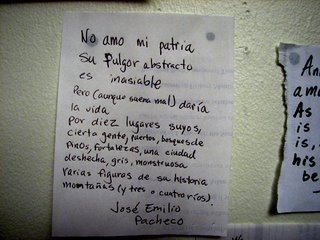 No amo mi patria
su fulgor abstracto
es inasible
Pero (aunque suena mal) daría
la vida
por diez lugares suyos,
cierta gente, puertos, bosques de
pinos, fortalezas, una ciudad
deshecha, gris, monstruosa
varias figuras de su historia
montañas (y tres o cuatro ríos).
José Emilio
Pacheco
An
amo
As
is
is,
his
be